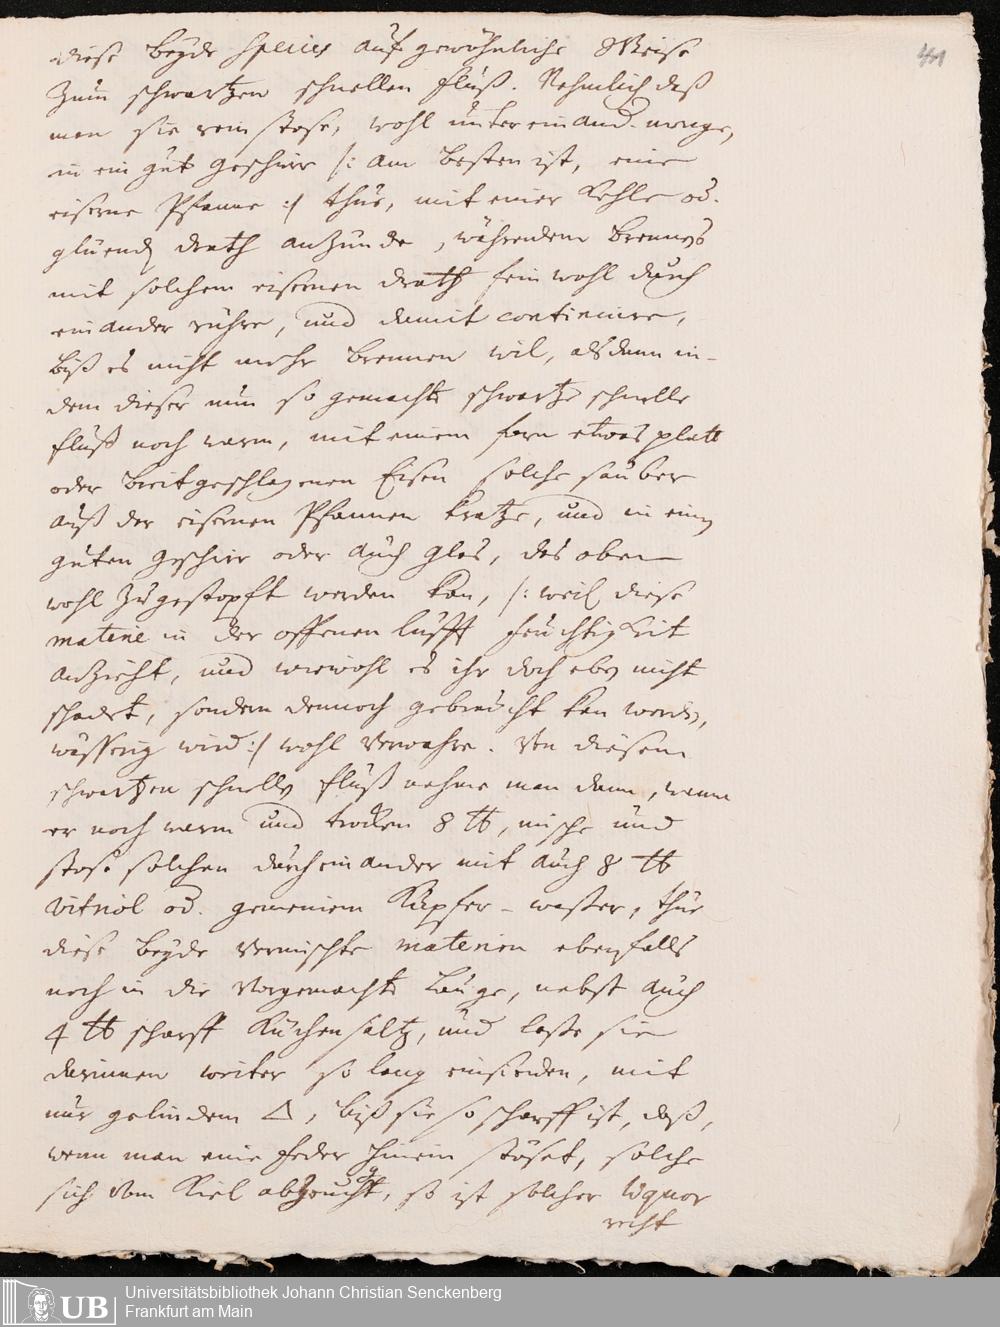 41
diese beÿde species auf gewöhnliche Weise
zum schwartzen schnellen fluß. Nehmlich daß
man sie rein stose, wohl untereinand. menge,
in ein gut geschirr /: am besten ist, eine
eiserne Pfanne :/ thue, mit einer Kohle od.
glüend drath anzünde, währendem brennens
mit solchem eisernen drath fein wohl durch
einander rühre, und damit continuire,
biß es nicht mehr brennen wil, alsdann in-
dem dieser nun so gemachte schwartze schnelle
fluß noch warm, mit einem forn etwas platt
oder breitgeschlagenen Eisen solche sauber
auß der eisernen Pfannen kratze, und in einen
guten geschirr oder auch glas, das oben
wohl zugestopft werden kan, /: weil diese
materie in der offenen lufft feuchtigkeit
anzieht, und wiewohl es ihr doch eben nicht
schadet, sondern dennoch gebraucht kan werden,
wässerig wird :/ wohl verwahre. Von diesem
schwartzen schnellen fluß nehme man dann, wann
er noch warm und trocken 8 ℔, mische und
stose solchen durcheinander mit auch 8 ℔
vitriol od. gemeinem Kupfer-wasser, thue
diese beÿde vermischte materien ebenfalls
noch in die vorgemachte lauge, nebst auch
4 ℔ scharff Küchensaltz, und lasse sie
darinnen weiter so lang einsieden, mit
nur gelindem △, biß sie so scharff ist, daß,
wenn man eine feder hinein stöset, solche
sich vom Kiel so ist solcher liquor
recht
UB
Universitätsbibliothek Johann Christian Senckenberg
Frankfurt am Main